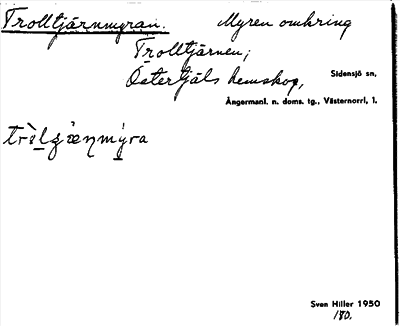 Trolltjärnmyran. Myren omkring
Trolltjärnen;
Östertjäls hemskog,
Sidensjö sn,
Ångermanl. n. doms. tg., Västernorrl. l.
Sven Hiller 1950
180.